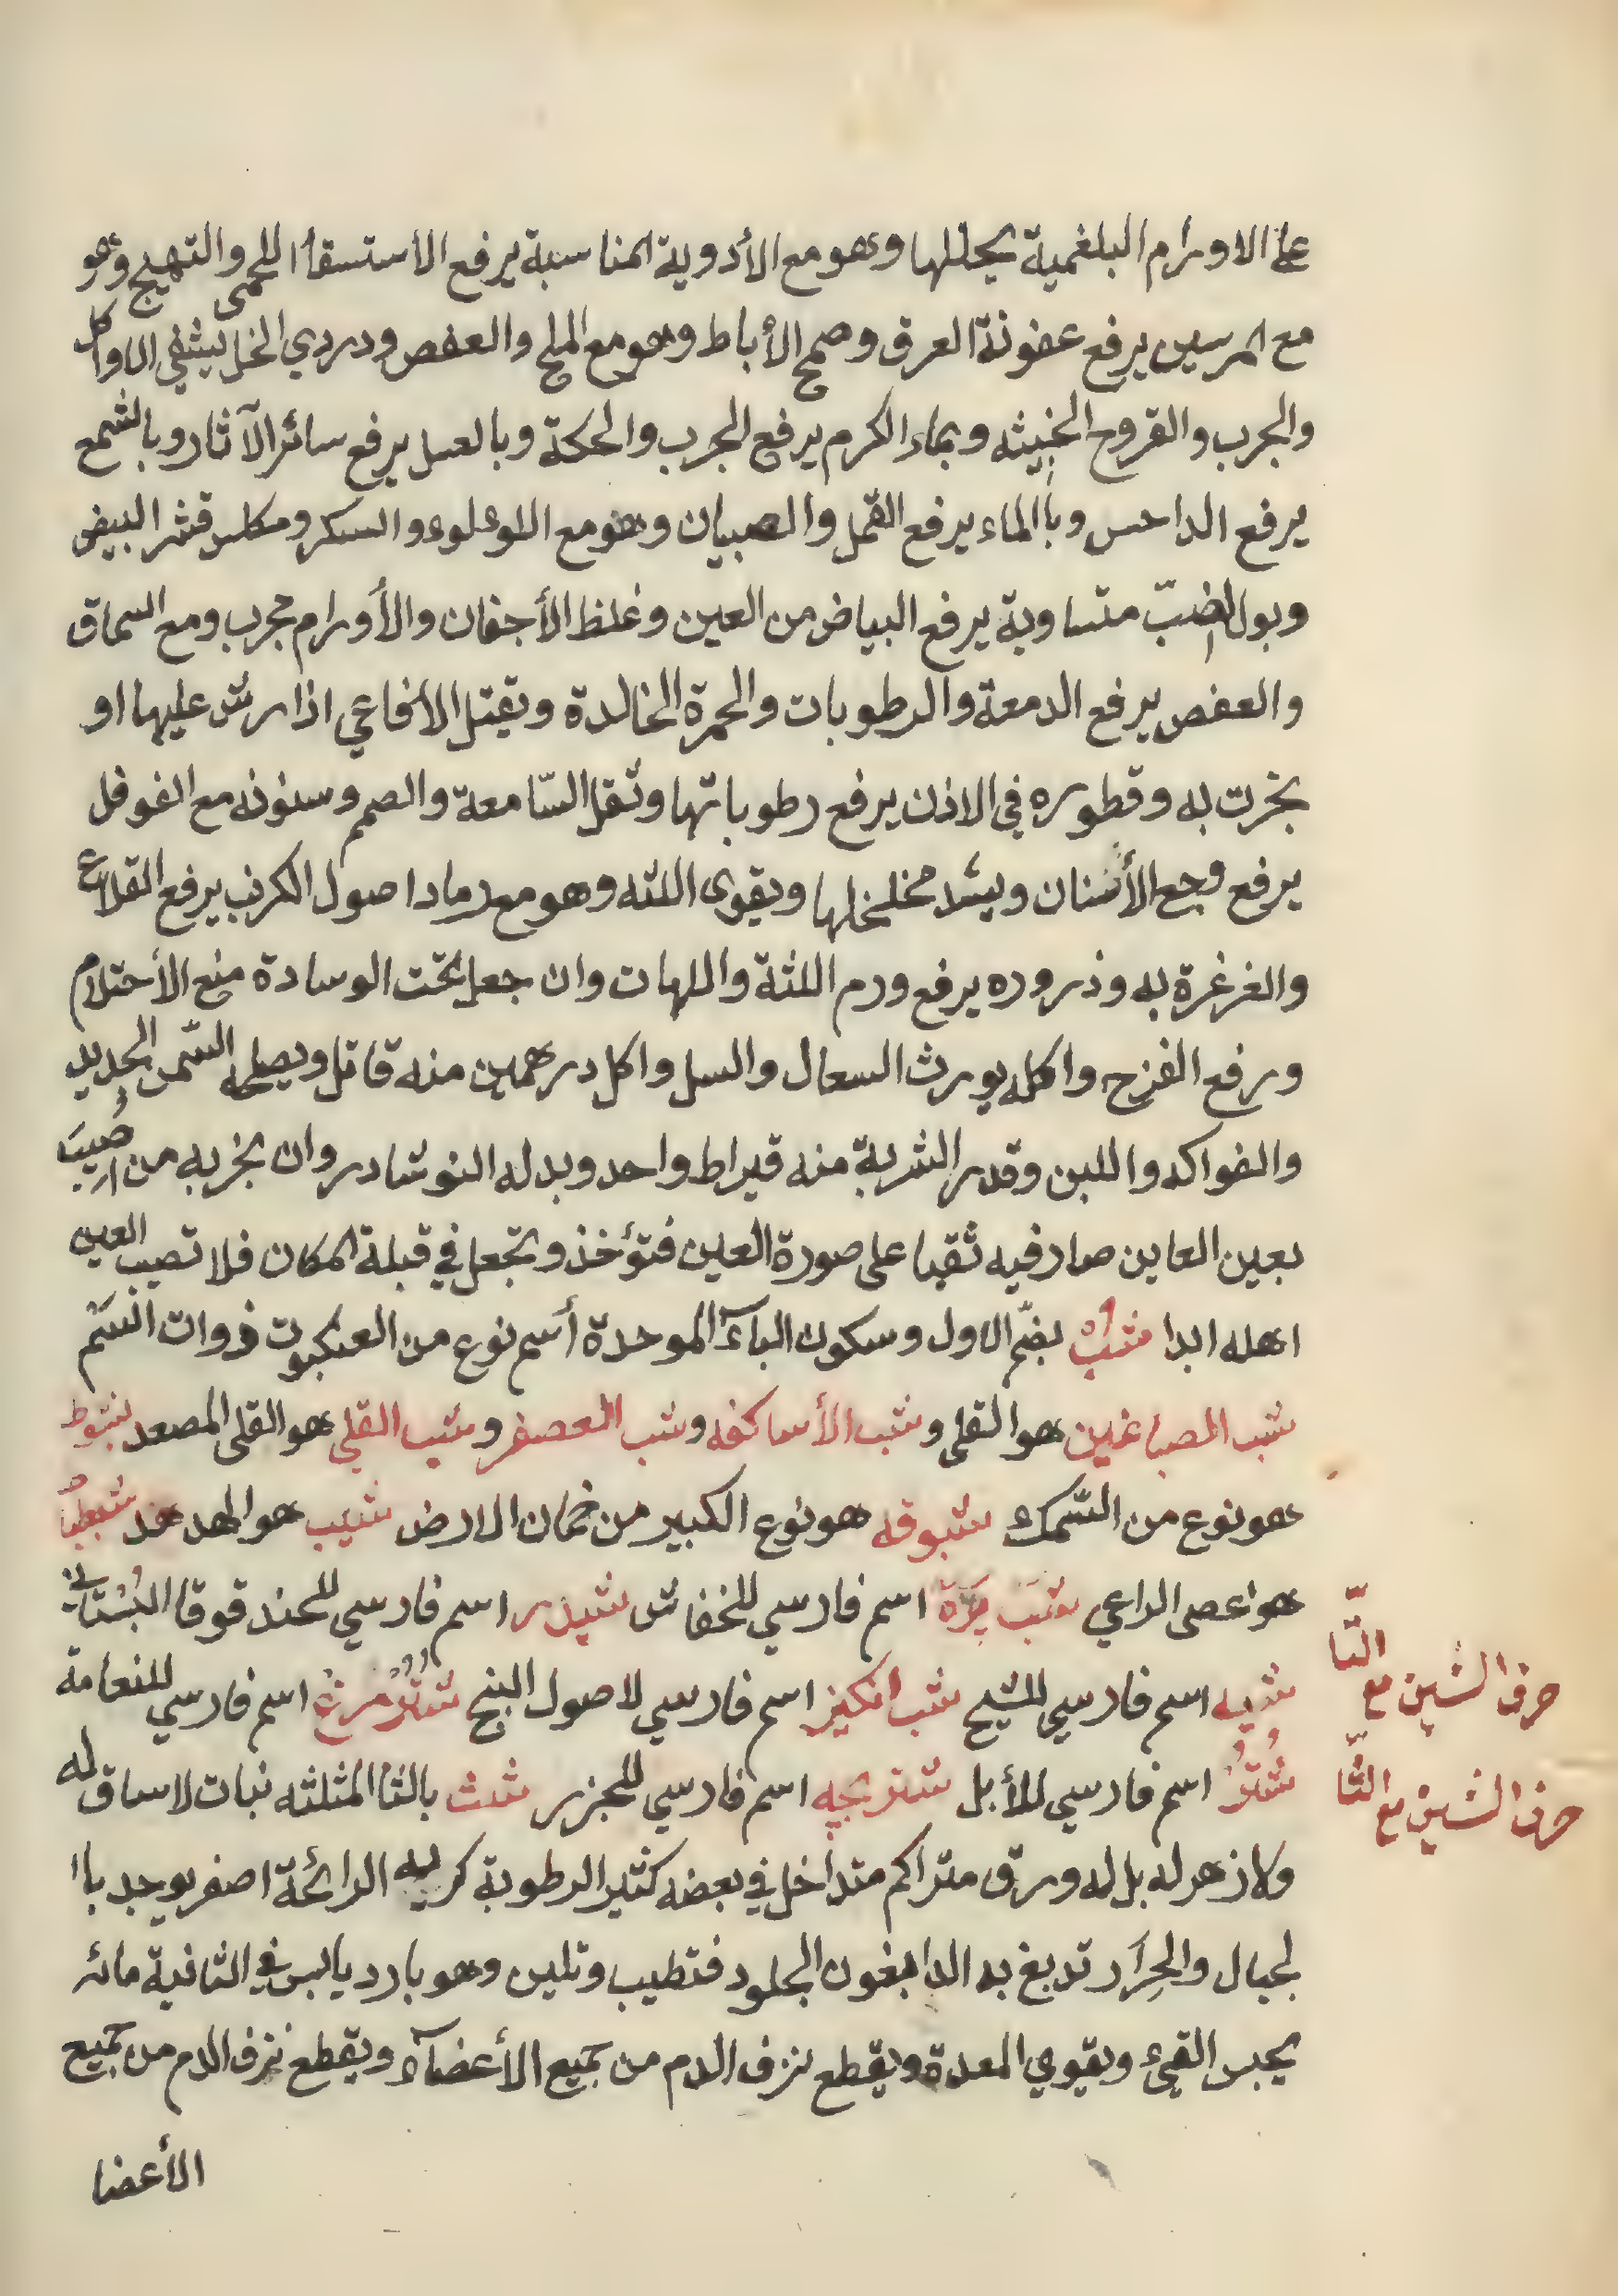 على الاورام البلغمية يحللها وهو مع الأدوية المناسبة يرفع الاستسقاا اللحمى والتهيج وهو
مع المرسين يرفع عفونة العرق وصمح الأباط وهو مع الملح والعفص ودردي الخل يشفي الاواكل
والجرب والقروح الخبيثه وبماء الكرم يرفع الجرب والحكة وبالعسل يرفع سائر الآثار وبالشمع
يرفع الداحس وباالماء يرفع القمل والصبيان وهو مع اللوءلوء والسكر ومكلس قشر البيض
وبول الضبّ متساوية يرفع البياض من العين وغلظ الأجفان والأورام مجرب ومع السماق
والعفص يرفع الدمعة والرطوبات والحمرة الخالدة ويقتل الافاعي اذا رش عليها او
بخرت به وقطوره في الاذن يرفع رطوباتها وثقل السّامعة والصمم وسنونه مع الفوفل
يرفع وجع الأسنان ويشد مخلخلها ويقوى اللثه وهو مع رماد اصول الكرنب يرفع القلاع
والغرغرة به وذروره يرفع ورم اللثة واللهات وان جعل تحت الوسادة منع الأحتلام
ورفع الفزح واكله يورث السعال والسل واكل درهمين منه قاتل ويصلحه السّمن الجديد
والفواكه واللبن وقدر الشربة منه قيراط واحد وبدله النوشادر وان بخر به من اُصيبَ
بعين العاين صار فيه ثقبا على صورة العين فتؤخذ وتجعل في قبلة المكان فلا تصيب العين
اهله ابدا شبْث بضّم الاول وسكون البآء الموحدة أسم نوع من العنكبوت ذوات السّم
شب الصباغين هو القلى وشب الأساكفه وشب العصفر وشب القلي هو القلى المصعد شبوط
هو نوع من السّمك شبوقه هو نوع الكبير من خمان الارض شبب هو الهدهد شبطبا
هو عصى الراعي شبَ پَرَة اسم فارسي للخفاش شبذر اسم فارسي للحندقوقا البُسْتاني
شبيه اسم فارسي للشيح شب انكيز اسم فارسي لاصول البنج شُتُرْمُرغ اسم فارسي للنعامة
حرف الشين مع التّا
شُتُرْ اسم فارسي للأبل شتر بچه اسم فارسي للجزر شث بالثا المثلثه نبات لا ساق له
حرف الشين مع الثّا
ولا زهر له بل له ورق متراكم متداخل في بعضه كثير الرطوبة كريه الرائحة اصفر يوجد باا
لجبال والحِرَار تدبغ به الدابغون الجلود فتطيب وتلين وهو بارد يابس في الثانية مائه
يحبس القئ ويقوي المعدة ويقطع نزف الدم من جميع الأعضآء ويقطع نزف الدم من جميع
الأعضا